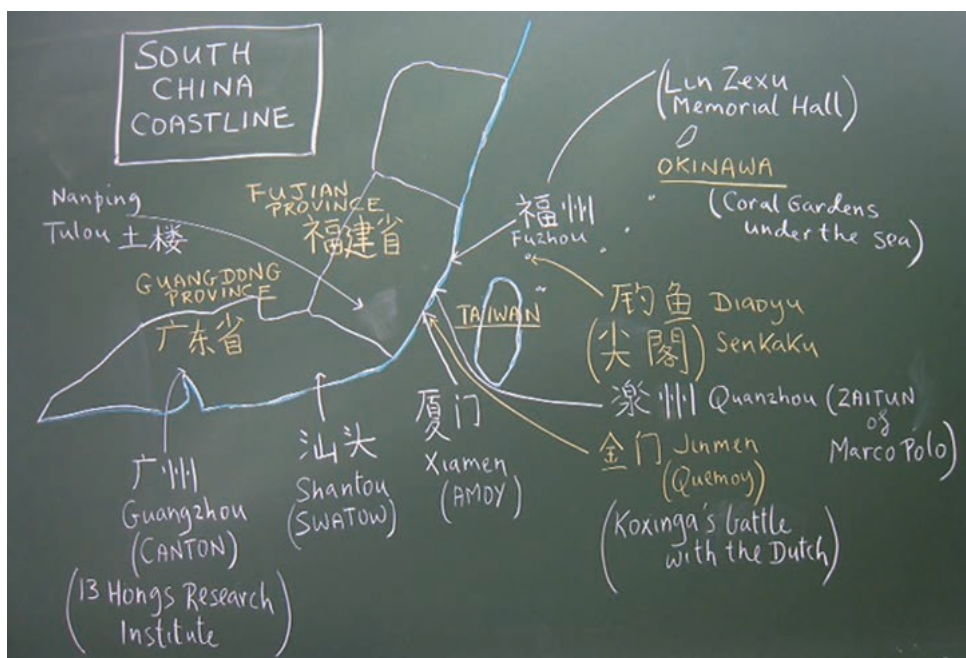 SOUTH
CHINA
COASTLINE
(Lin Zexu
Memorial Hall)
OKINAWA
(Coral Gardens
under the sea)
Nanping
Tulou 土楼
FUJIAN
PROVINCE
福建省
福州
Fuzhou
GUANGDONG
PROVINCE
广东省
TAIWAN
钓鱼 Diaoyu
(尖閣) Senkaku
州 Quanzhou (ZAITUN
of
Marco Polo)
金门 Jinmen
(Quemoy)
(Koxinga's battle
with the Dutch)
厦门
Xiamen
(AMOY)
汕头
Shantou
(SWATOW)
广州
Guangzhou
(CANTON)
(13 Hongs Research
Institute)